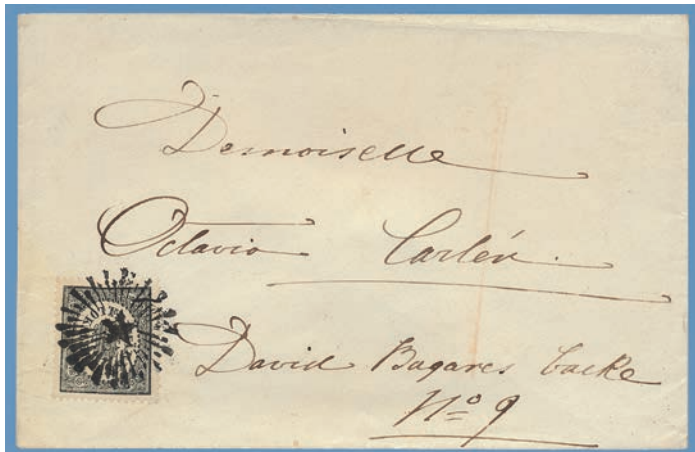 Demoiselle
Octavia Carlén.
David Bagares backe
No 9